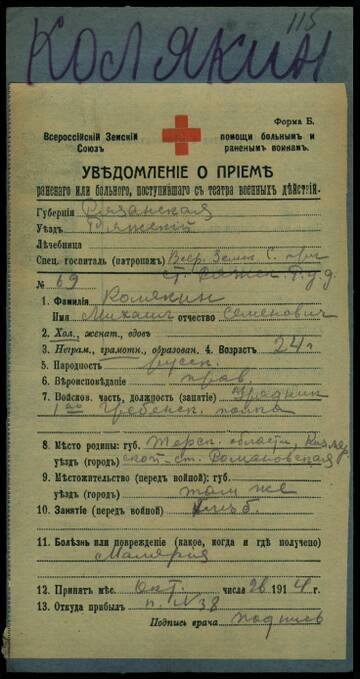 115
КОЛЯКИН
Форма Б.
Всероссійскій Земскій Союзъ
помощи больнымъ и раненымъ воинамъ.
УВѢДОМЛЕНІЕ О ПРІЕМѢ
раненаго или больного, поступившаго съ театра военныхъ дѣйствій.
Губернія Рязанская
Уѣздъ Ряжскій
Лѣчебница
Спец. госпиталь (патронажъ) Всер. Земск. С. при
ст. Ряжск
№ 69
1. Фамилія Колякин
Имя Михаил отчество Семенович
2. Хол., женат., вдовъ
3. Неграм., грамотн., образован. 4. Возрастъ 24 г
5. Народность русск.
6. Вѣроисповѣданіе прав.
7. Войсков. часть, должность (занятіе) урядник
1го Гребенск. полка
8. Мѣсто родины: губ. Терск. области, Кизляр
уѣздъ (городъ) ской ст.
9. Мѣстожительство (передъ войной): губ.
уѣздъ (городъ) там же
10. Занятіе (передъ войной)
11. Болѣзнь или поврежденіе (какое, когда и гдѣ получено)
Малярія
12. Принятъ мѣс. Окт. числа 26 1914 г.
13. Откуда прибылъ п. № 38
Подпись врача подпись